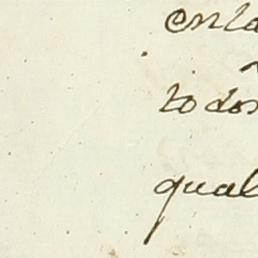 en la
todos
qual